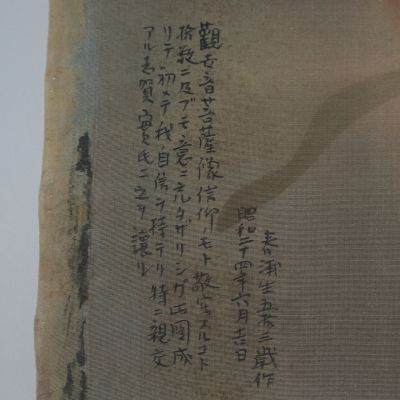 春浦生五拾三歳作
昭和二十四年六月吉日
觀世音菩薩像信仰ノモト敬写スルコト
拾数ニ及ブモ意ニ充タザリシガ此圖成
リテ初メテ我自信ヲ持テリ特ニ親交
アル志賀實氏ニ之ヲ讓ル